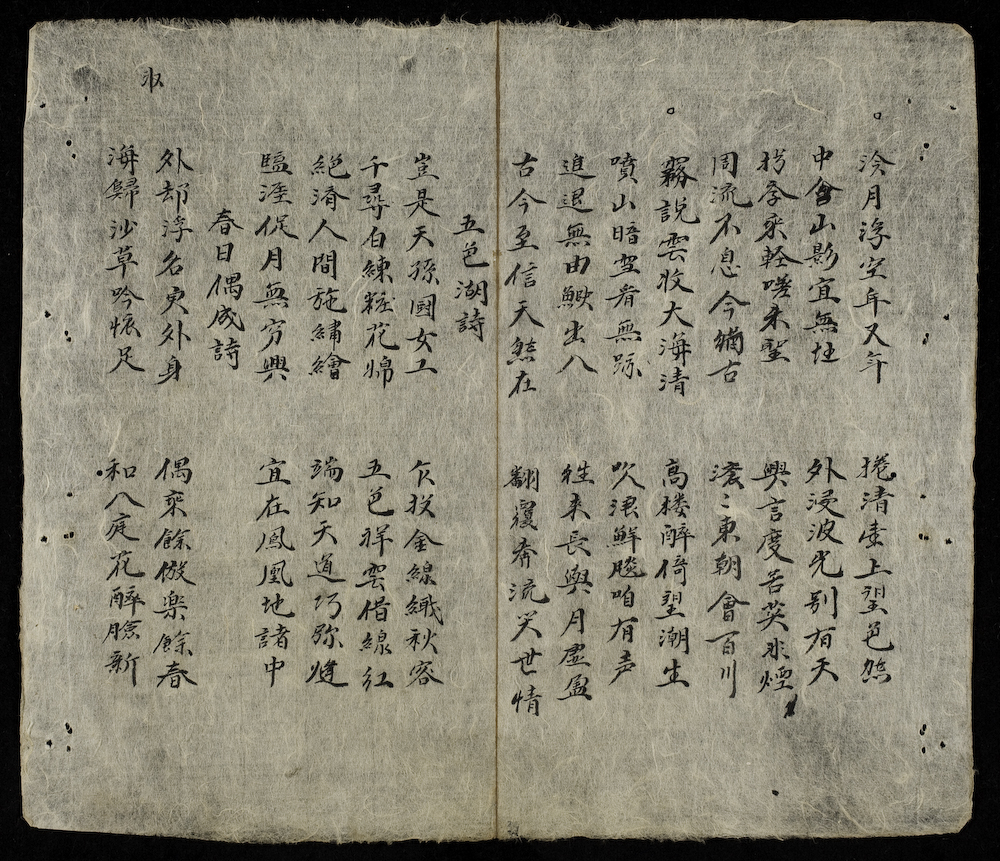 泠月浮空年又年 捲清上望色然
中會山影宜無 外浸波光别有天
乘軽嗟未 興言度若英非煙
周流不息今猶古 滚〻東朝會百川
霧説雲收大海清 高楼醉倚望潮生
噴山暗雪看無跡 吹浪鮮飈咱有声
進退無由鰍出八 徃来長與月虛盈
古今至信天然在 翻覆奔流笑世情
五色湖詩
豈是天孫國女工 乍投金線織秋容
千尋白練粧花婦 五色祥雲借線紅
絕濟人間施繡繪 端知天道巧弥縫
臨涯促月無穷興 宜在鳳凰地諸中
春日偶成詩
外却浮名更外身 偶來餘倣楽餘春
海歸沙草吟懷足 和入庭花醉臉新